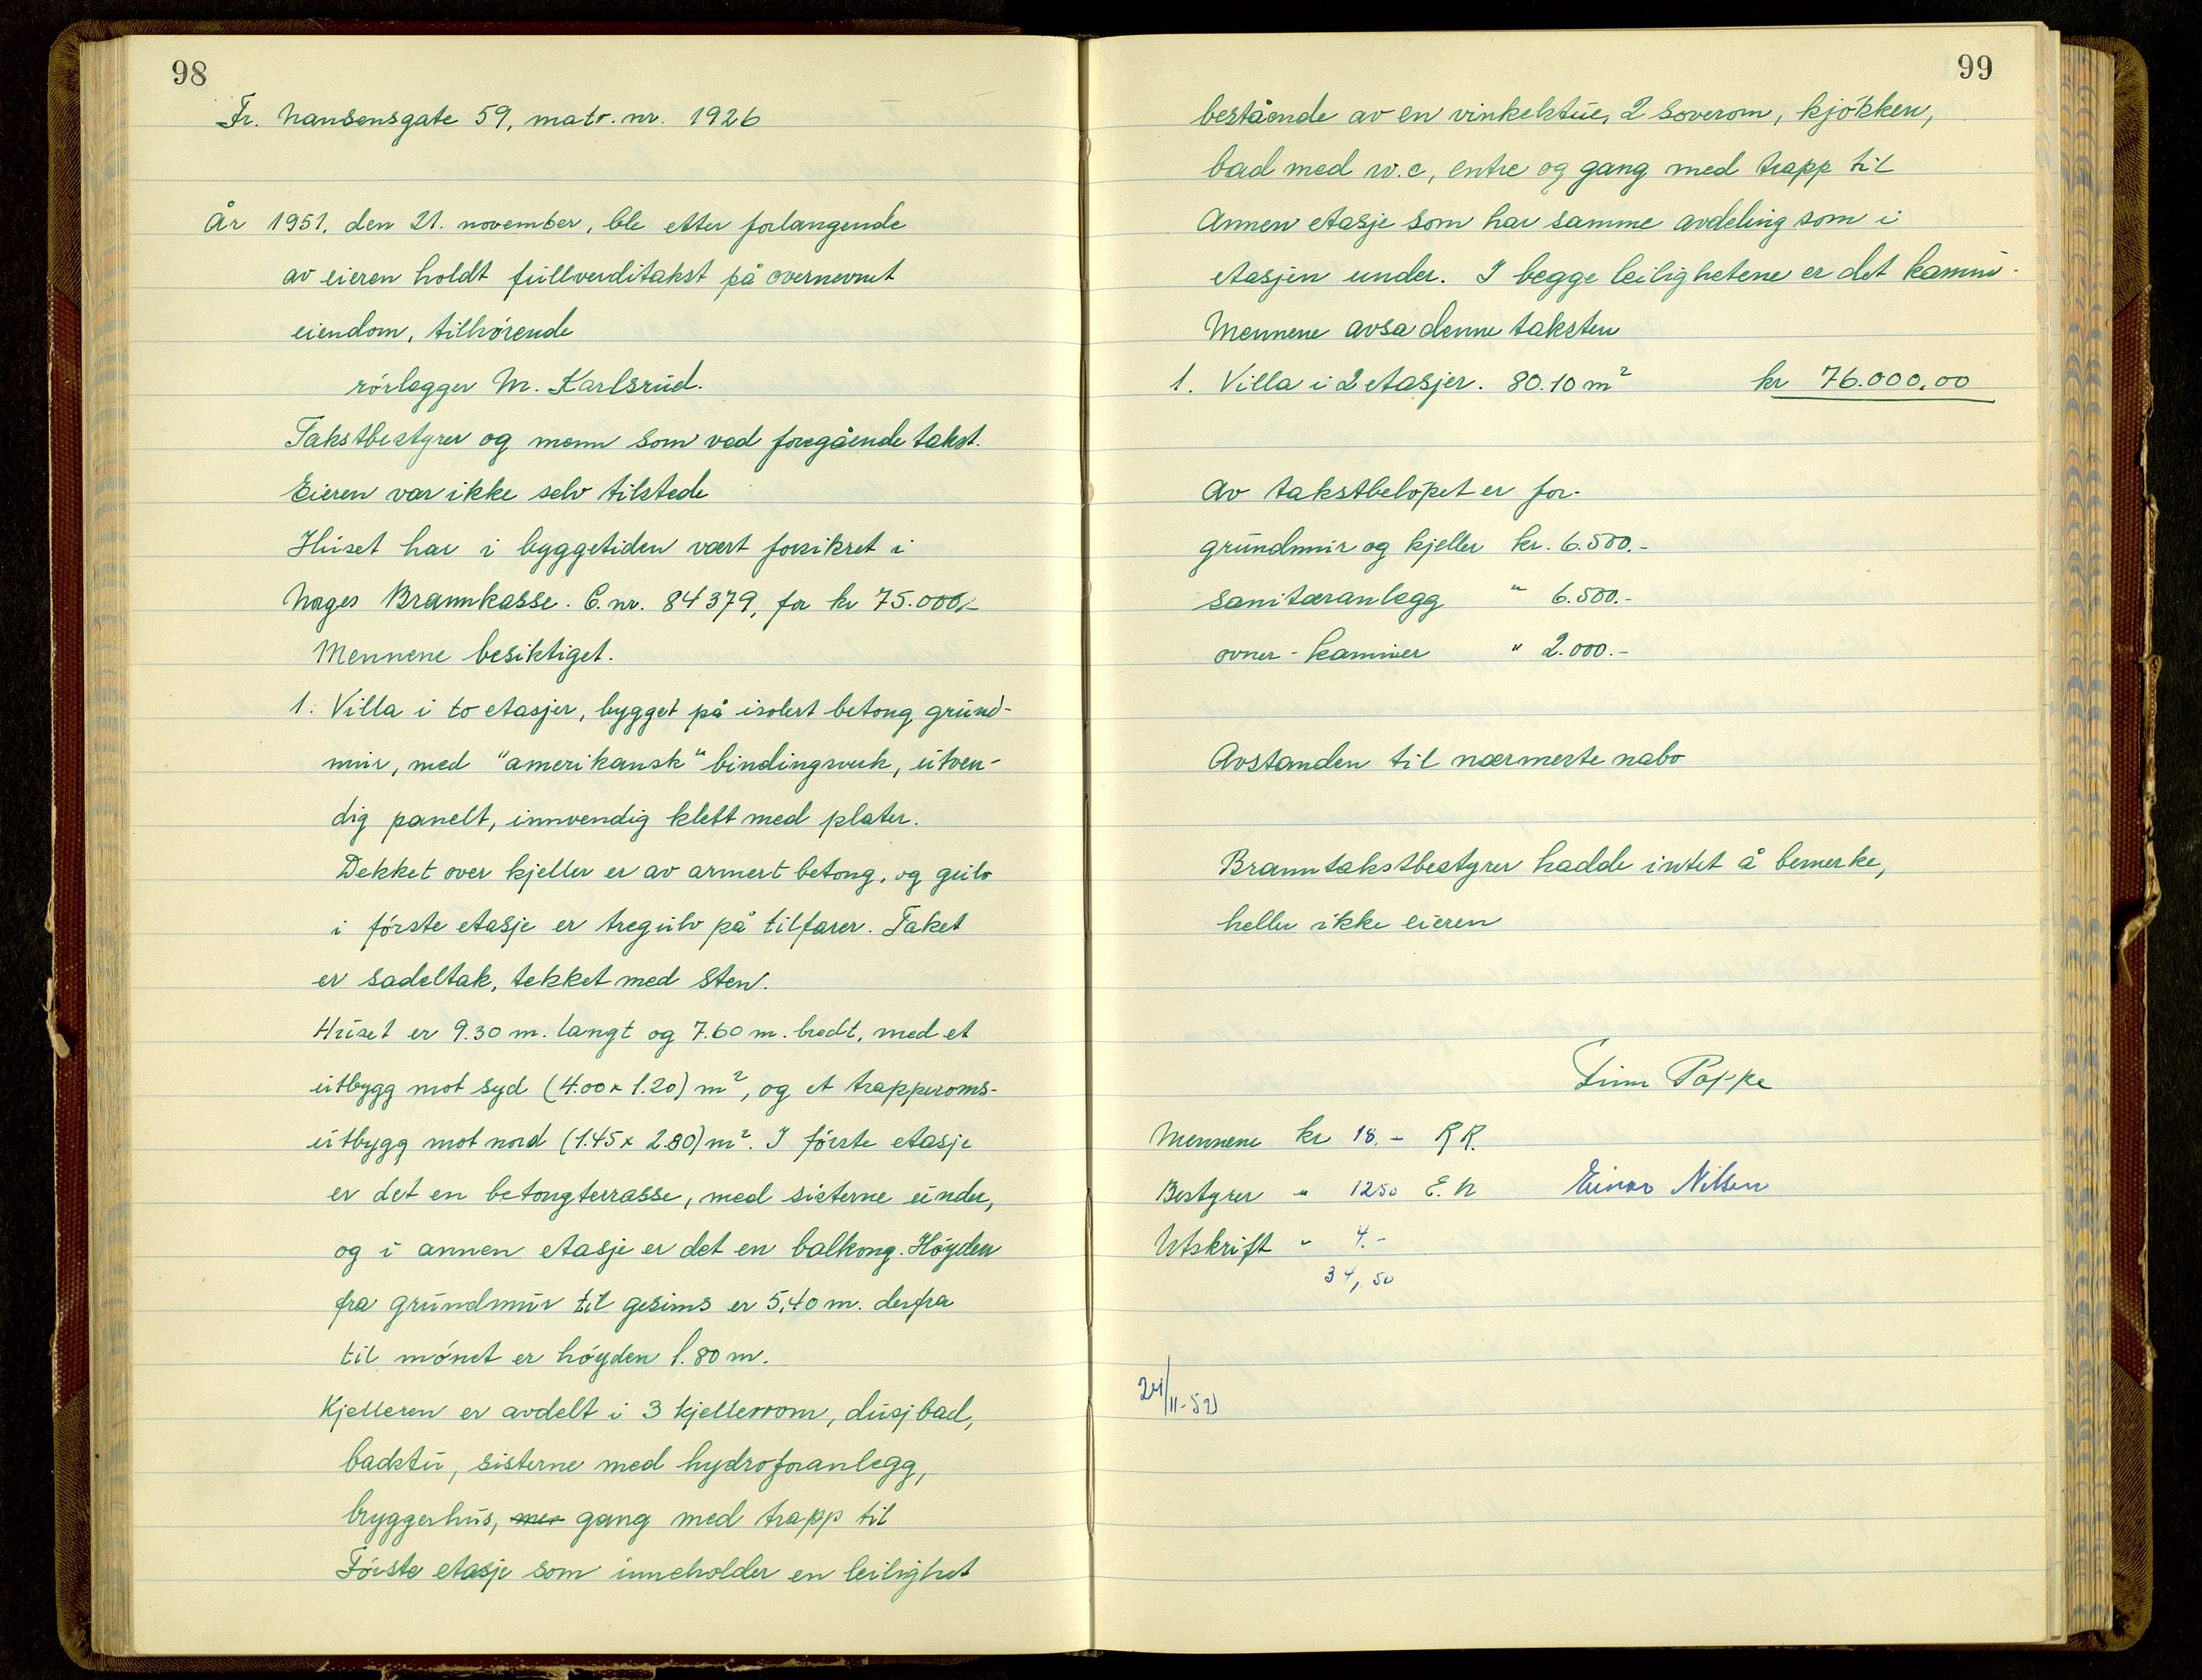 98
Fr. Nansensgate 59, matr. nr. 1926
År 1951, den 21. november, ble etter forlangende
av eieren holdt fullverditakst på overnevnt
eiendom, tilhørende
rørlegger M. Karlsrud.
Takstbestyrer og menn som ved foregående takst.
Eieren var ikke selv tilstede
Huset har i byggetiden vært forsikret i
Norges Brannkasse. C.nr. 84379, for kr 75.000,-
Mennene besiktiget.
1. Villa i to etasjer, bygget på isolert betong grund-
mur, med "amerikansk" bindingsverk, utven-
dig panelt, innvendig klett med plater.
Dekket over kjeller er av armert betong, og gulv
i første etasje er tregulv på tilfarer. Taket
er sadeltak, tekket med sten.
Huset er 9.30 m. langt og 7.60 m. bredt, med et
utbygg mot syd (4.00 x 1.20) m², og et trapperoms-
utbygg mot nord (1.45 x 2.80) m². I første etasje
er det en betongterrasse, med sisterne under,
og i annen etasje er det en balkong. Høyden
fra grundmur til gesims er 5,40 m. derfra
til mønet er høyden 1.80 m.
Kjelleren er avdelt i 3 kjellerrom, dusjbad,
badstu, sisterne med hydroforanlegg,
bryggerhus, mer gang med trapp til
Første etasje som inneholder en leilighet
99
bestående av en vinkelstue, 2 soverom, kjøkken,
bad med w.c, entre og gang med trapp til
Annen etasje som har samme avdeling som i
etasjen under. I begge leilighetene er det kamin.
Mennene avsa denne taksten
1. Villa i 2 etasjer. 80.10 m² kr 76.000,00
Av takstbeløpet er for.
grundmur og kjeller kr. 6.500.-
sanitæranlegg " 6.500.-
ovner - kaminer " 2.000.-
Avstanden til nærmeste nabo
Branntakstbestyrer hadde intet å bemerke,
heller ikke eieren
Finn Poppe
Mennene kr 18.- R R.
Bestyrer " 1250 E. N Einar Nilsen
Utskrift " 4.-
34,50
24/11-51